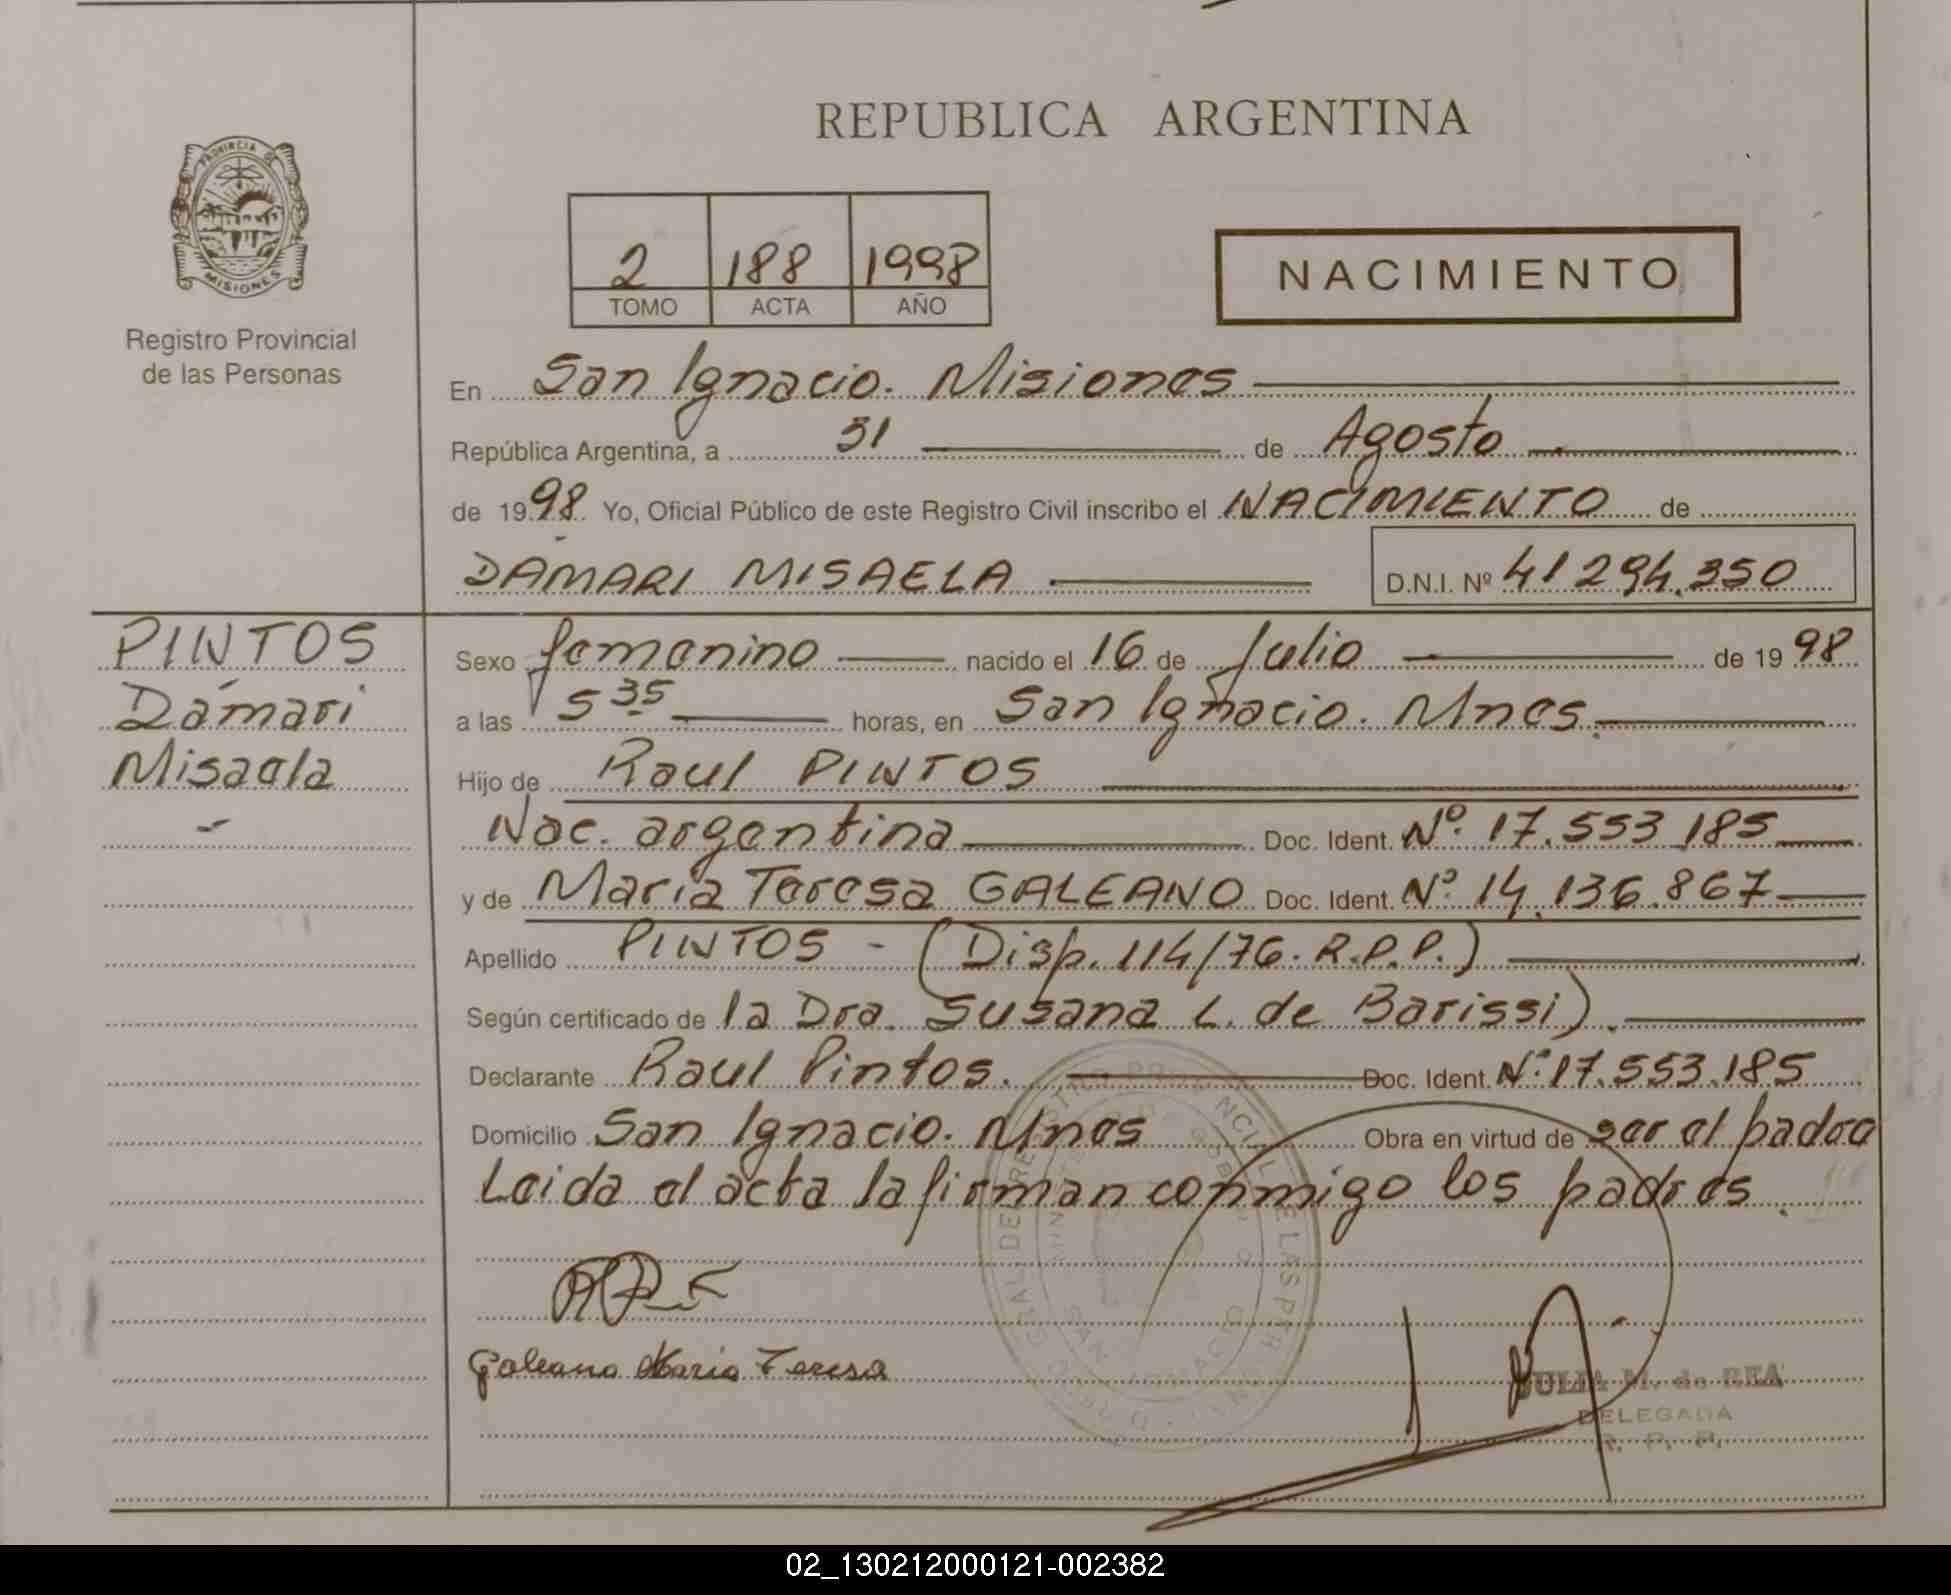 PROVINCIA DE
MISIONES
Registro Provincial
de las Personas
REPUBLICA ARGENTINA
2 188 1998
TOMO ACTA AÑO
NACIMIENTO
En San Ignacio. Misiones
República Argentina, a 31 de Agosto
de 1998 Yo, Oficial Público de este Registro Civil inscribo el NACIMIENTO de
DAMARI MISAELA D.N.I. Nº 41294.350
PINTOS
Dámari
Misaela
Sexo femenino nacido el 16 de Julio de 1998
a las 5 35 horas, en San Ignacio. Mnes.
Hijo de Raul PINTOS
Nac. argentina Doc. Ident. Nº 17.553.185
y de María Teresa GALEANO Doc. Ident. Nº 14.136.867
Apellido PINTOS - (Disp. 114/76. R.P.P.)
Según certificado de la Dra. Susana L. de Barissi).
Declarante Raul Pintos. Doc. Ident. Nº 17.553.185
Domicilio San Ignacio. Mnes Obra en virtud de ser el padre
Leida el acta la firman conmigo los padres.
Galeano Maria Teresa
JULIA M. de REA
DELEGADA
R. P. P.
SAN IGNACIO
02_130212000121-002382